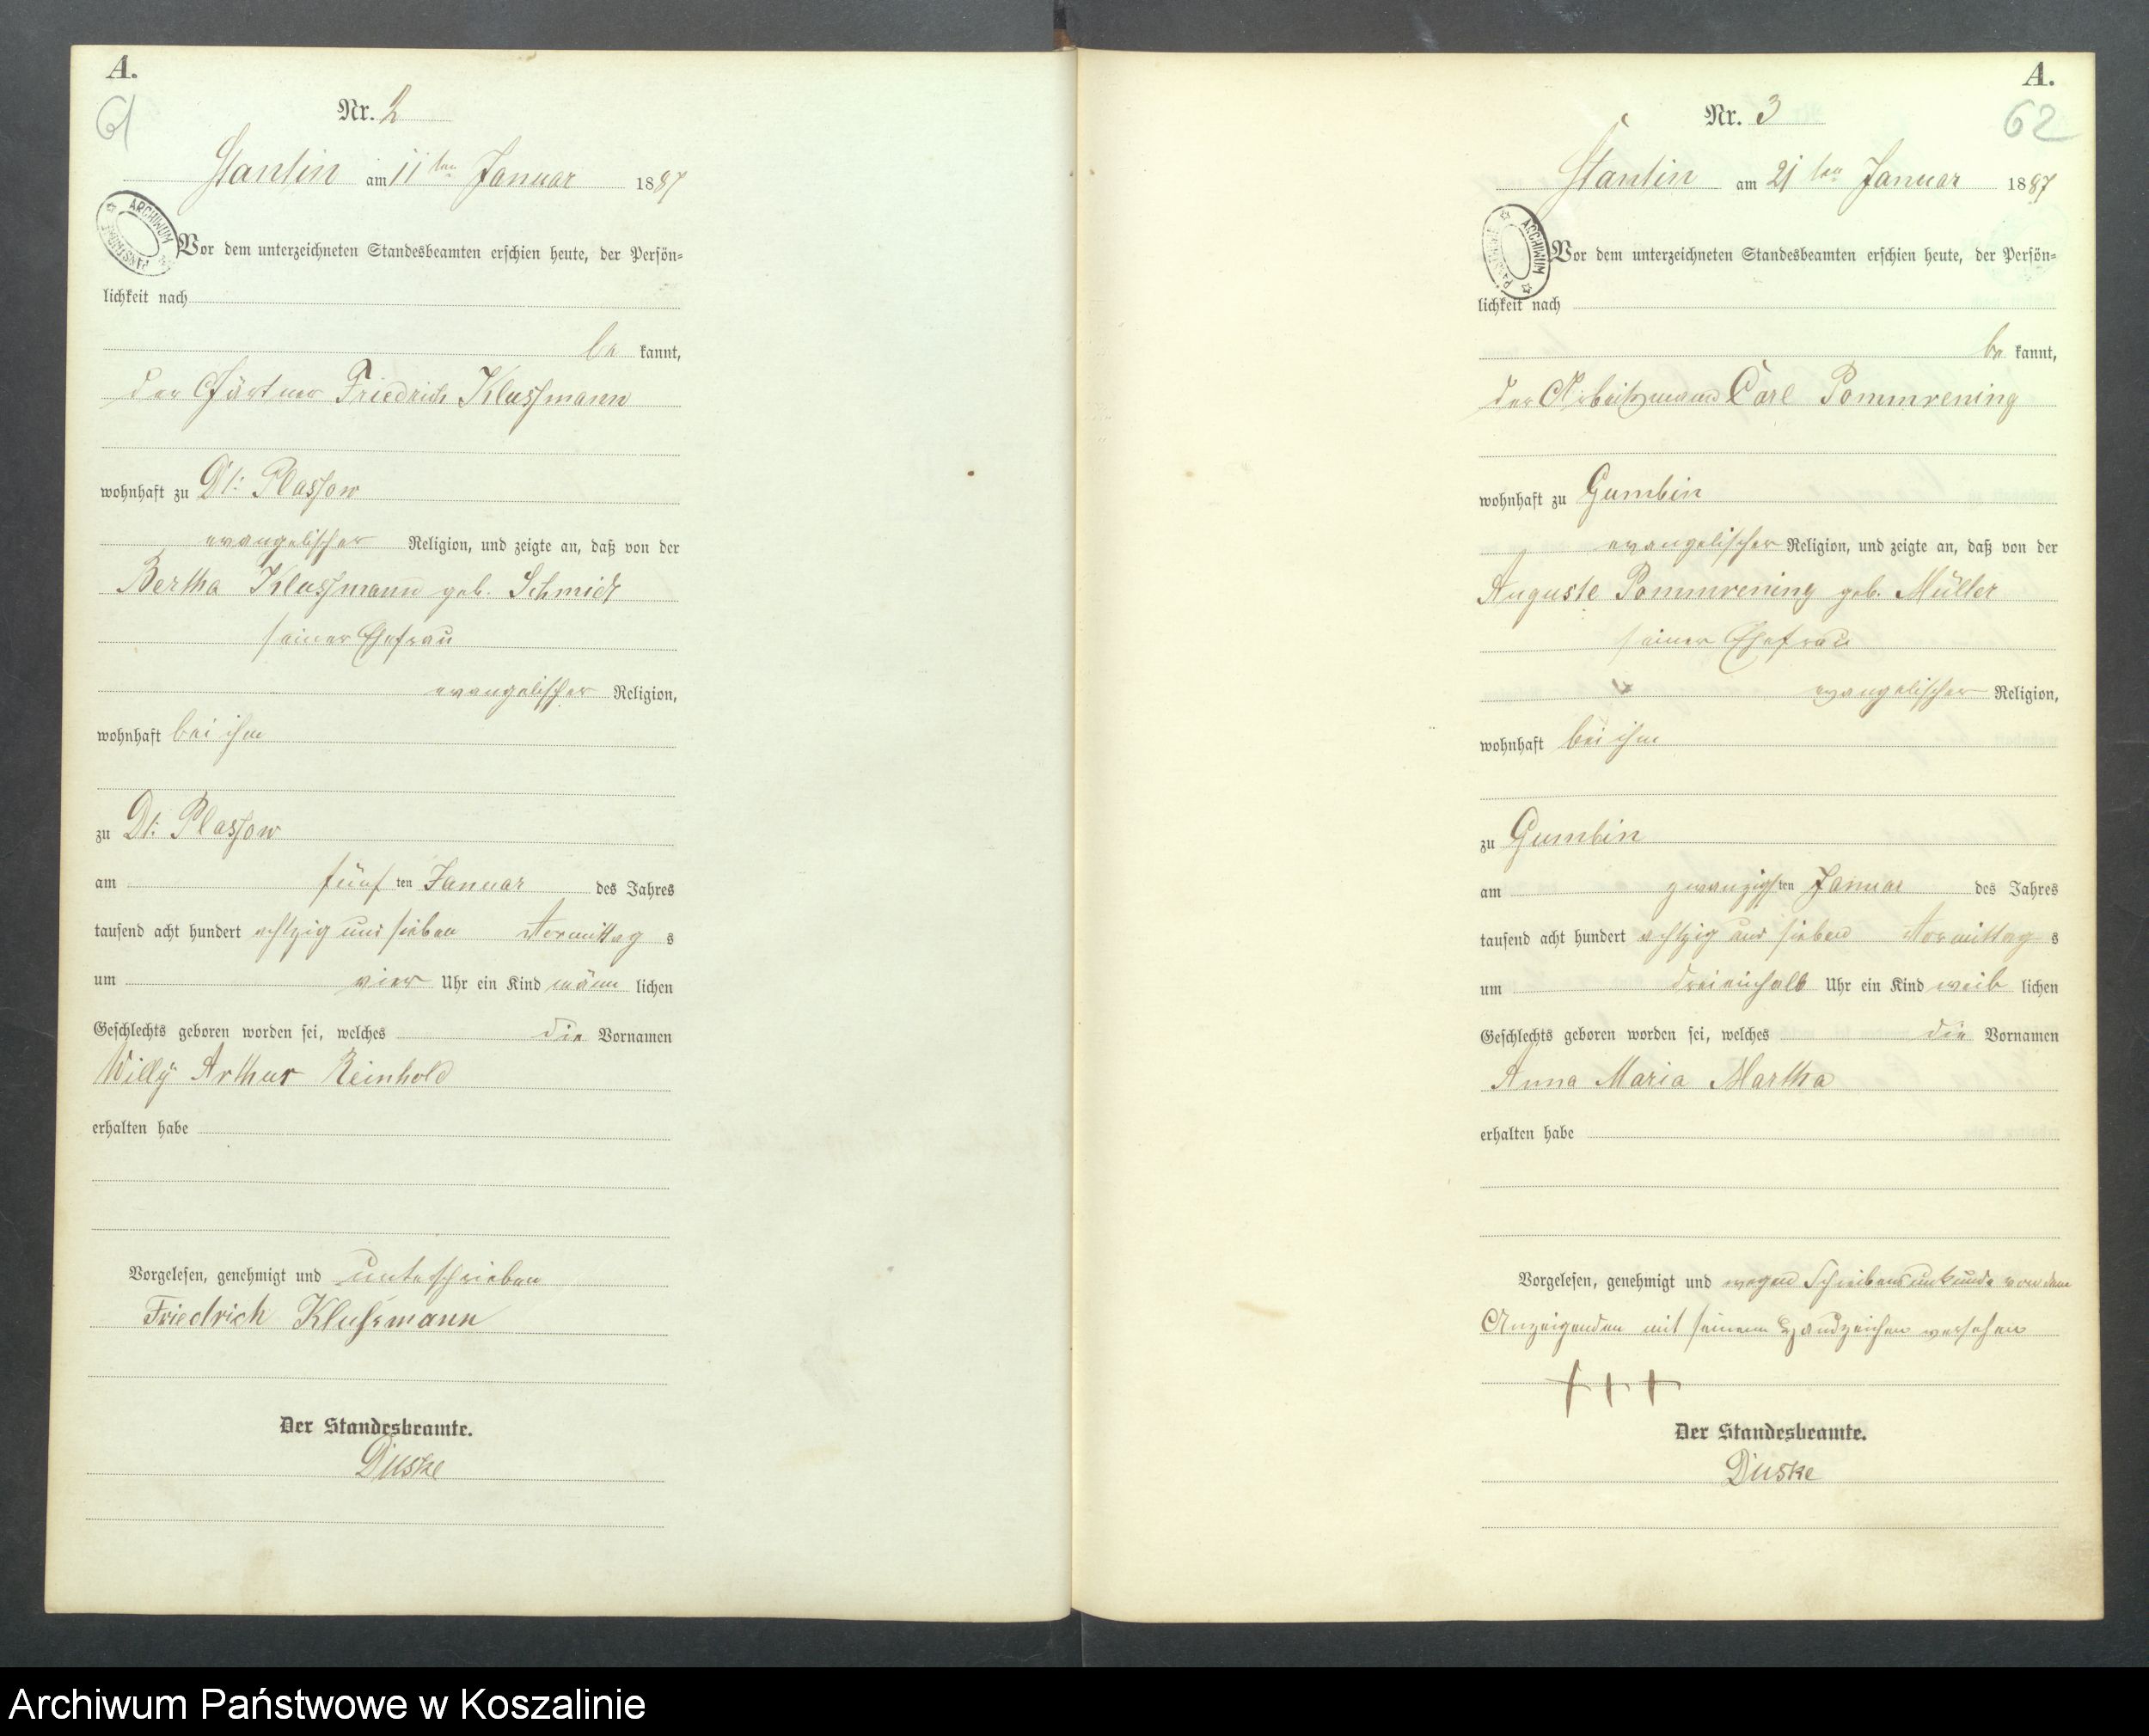 A.
61
Nr. 2
Stantin am 11ten Januar 1887
ARCHIWUM PAŃSTWOWE
Vor dem unterzeichneten Standesbeamten erschien heute, der Persön-
lichkeit nach
be kannt,
der Gärtner Friedrich Klussmann
wohnhaft zu Dt: Plassow
evangelischer Religion, und zeigte an, daß von der
Bertha Klussmann geb. Schmidt
seiner Ehefrau
evangelischer Religion,
wohnhaft bei ihm
zu Dt: Plassow
am fünf ten Januar des Jahres
tausend acht hundert achtzig und sieben Vormittag s
um vier Uhr ein Kind männ lichen
Geschlechts geboren worden sei, welches die Vornamen
Willÿ Arthur Reinhold
erhalten habe
Vorgelesen, genehmigt und unterschrieben
Friedrich Klussmann
Der Standesbeamte.
Duske
A.
62
Nr. 3
Stantin am 21ten Januar 1887
ARCHIWUM PAŃSTWOWE
Vor dem unterzeichneten Standesbeamten erschien heute, der Persön-
lichkeit nach
be kannt,
der Arbeitsmann Carl Pommrening
wohnhaft zu Gumbin
evangelischer Religion, und zeigte an, daß von der
Auguste Pommrening geb. Müller
seiner Ehefrau
evangelischer Religion,
wohnhaft bei ihm
zu Gumbin
am zwanzigs ten Januar des Jahres
tausend acht hundert achtzig und sieben Vormittag s
um dreieinhalb Uhr ein Kind weib lichen
Geschlechts geboren worden sei, welches die Vornamen
Anna Maria Martha
erhalten habe
Vorgelesen, genehmigt und wegen Schreibensunkunde von dem
Anzeigenden mit seinem Handzeichen versehen
+++
Der Standesbeamte.
Duske
Archiwum Państwowe w Koszalinie